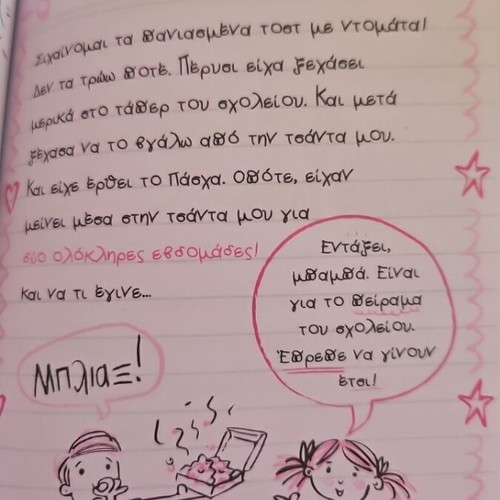 Σιχαίνομαι τα πανιασμένα τοστ με ντομάτα!
Δεν τα τρώω ποτέ. Πέρυσι είχα ξεχάσει
μερικά στο τάπερ του σχολείου. Και μετά
ξέχασα να το βγάλω από την τσάντα μου.
Και είχε έρθει το Πάσχα. Οπότε, είχαν
μείνει μέσα στην τσάντα μου για
δύο ολόκληρες εβδομάδες!
Και να τι έγινε...
Μπλιαξ!
Εντάξει,
μπαμπά. Είναι
για το πείραμα
του σχολείου.
Έπρεπε να γίνουν
έτσι!